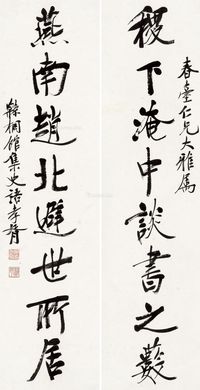 春臺仁兄大雅屬
稷下淹中談書之藪
燕南趙北避世所居
縣桐館集史語孝胥